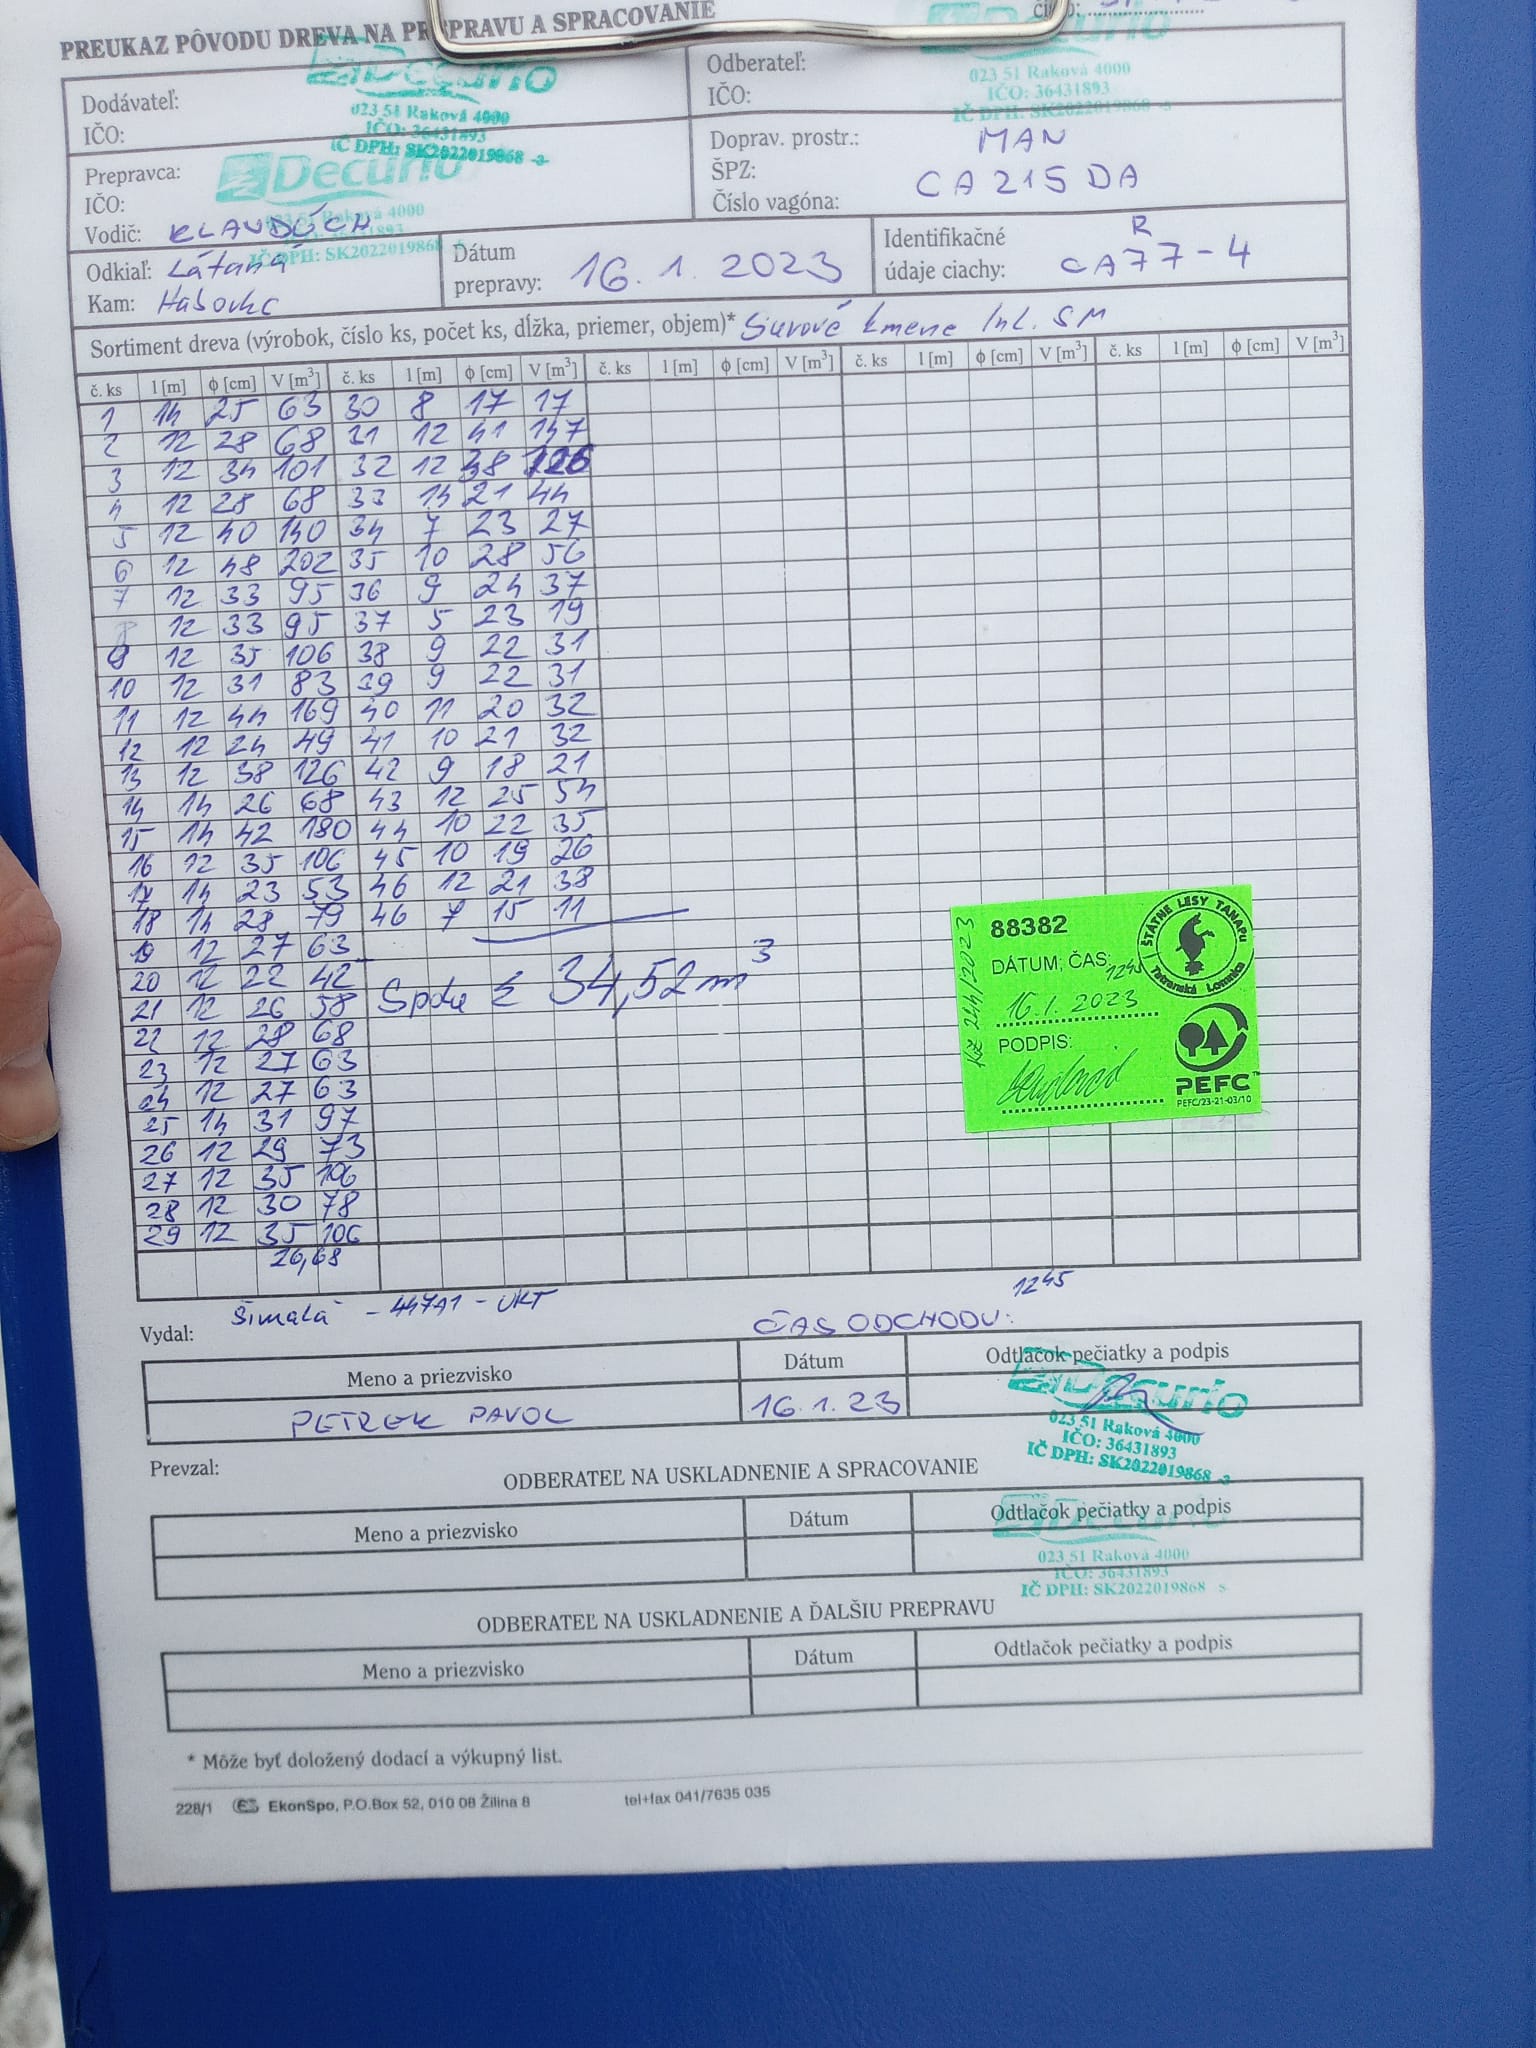 PREUKAZ PÔVODU DREVA NA PREPRAVU A SPRACOVANIE
Dodávateľ:
IČO:
Decurio
023 51 Raková 4000
IČO: 36431893
IČ DPH: SK2022019868 -3-
Odberateľ:
IČO:
Decurio
023 51 Raková 4000
IČO: 36431893
IČ DPH: SK2022019868
Prepravca:
IČO:
Vodič:
Decurio
023 51 Raková 4000
IČ DPH: SK2022019868
Doprav. prostr.: MAN
ŠPZ: CA215DA
Číslo vagóna:
Odkiaľ: Látaná
Kam:
Dátum
prepravy: 16. 1. 2023
Identifikačné R
údaje ciachy: CA77-4
Sortiment dreva (výrobok, číslo ks, počet ks, dĺžka, priemer, objem)* Surové kmene Ihl. SM
č. ks l [m] ϕ [cm] V [m³] č. ks l [m] ϕ [cm] V [m³] č. ks l [m] ϕ [cm] V [m³] č. ks l [m] ϕ [cm] V [m³] č. ks l [m] ϕ [cm] V [m³]
1 14 25 63 30 8 17 17
2 12 28 68 31 12 41 147
3 12 34 101 32 12 38 126
4 12 28 68 33 14 21 44
5 12 40 140 34 7 23 27
6 12 48 202 35 10 28 56
7 12 33 95 36 9 24 37
8 12 33 95 37 5 23 19
9 12 35 106 38 9 22 31
10 12 31 83 39 9 22 31
11 12 44 169 40 11 20 32
12 12 24 49 41 10 21 32
13 12 38 126 42 9 18 21
14 14 26 68 43 12 25 54
15 14 42 180 44 10 22 35
16 12 35 106 45 10 19 26
17 14 23 53 46 12 21 38
18 14 28 79 46 7 15 11
19 12 27 63
20 12 22 42
21 12 26 58
Spolu 34,52 m³
22 12 28 68
23 12 27 63
24 12 27 63
25 14 31 97
26 12 29 73
27 12 35 106
28 12 30 78
29 12 35 106
26,68
88382
DÁTUM; ČAS: 1245
16.1.2023
PODPIS:
ŠTÁTNE LESY TANAPU
Tatranská Lomnica
PEFC™
PEFC/23-21-03/10
Šimalá - 447A1 - VKT
1245
ČAS ODCHODU:
Vydal:
Meno a priezvisko Dátum Odtlačok pečiatky a podpis
PETREK PAVOL 16.1.23
Decurio
023 51 Raková 4000
IČO: 36431893
IČ DPH: SK2022019868 -3-
Prevzal:
ODBERATEĽ NA USKLADNENIE A SPRACOVANIE
Meno a priezvisko Dátum Odtlačok pečiatky a podpis
Decurio
023 51 Raková 4000
IČO: 36431893
IČ DPH: SK2022019868
ODBERATEĽ NA USKLADNENIE A ĎALŠIU PREPRAVU
Meno a priezvisko Dátum Odtlačok pečiatky a podpis
* Môže byť doložený dodací a výkupný list.
228/1 EkonSpo, P.O.Box 52, 010 08 Žilina 8 tel+fax 041/7635 035